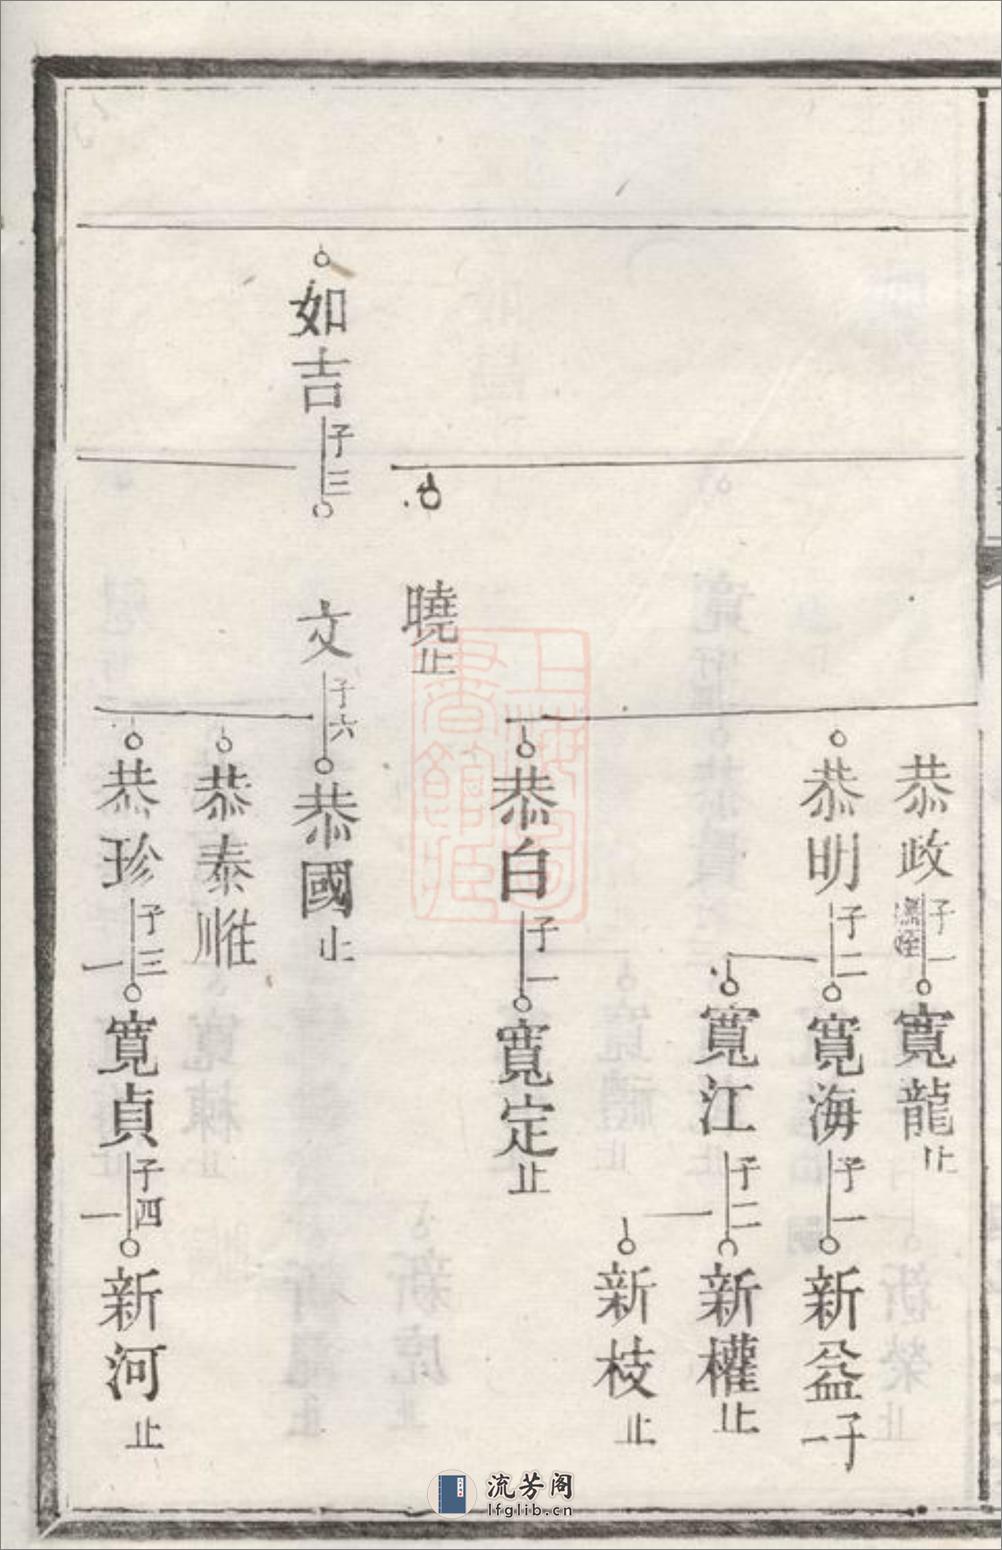 恭政子一
寬龍止
恭明子二
寬海子一
新益子一
寬江子二
新權止
新枝止
恭白子一
寬定止
曉止
如吉子三
文子六
恭國止
恭泰
恭珍子三
寬貞子四
新河止
上海圖書館藏
流芳阁
lfglib.cn